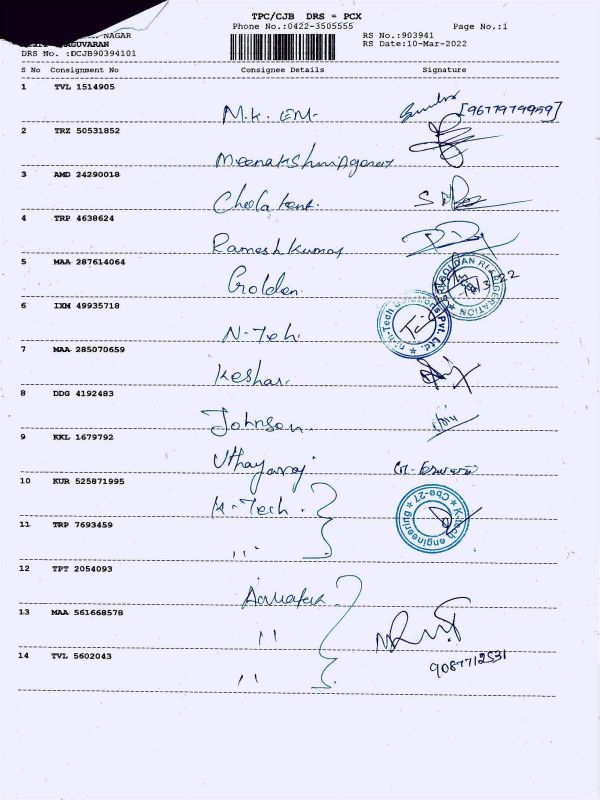 TPC/CJB DRS = PCX
Phone No.:0422-3505555 Page No.:1
NAGAR RS No.:903941
RS Date:10-Mar-2022
DRS No. :DCJB90394101
S No Consignment No Consignee Details Signature
1 TVL 1514905
M.K. EM. [9677979959]
2 TRZ 50531852
Meenakshi Agency
3 AMD 24290018
Chola
4 TRP 4638624
Ramesh Kumar
5 MAA 287614064
Golden
6 IXM 49935718
N-Teh
7 MAA 285070659
Keshar.
8 DDG 4192483
Johnson.
9 KKL 1679792
Uthayaraj
10 KUR 525871995
K-Tech.
K-tech engineering Cbe-27
11 TRP 7693459
,, ..
12 TPT 2054093
13 MAA 561668578
''
14 TVL 5602043
9087712531
''